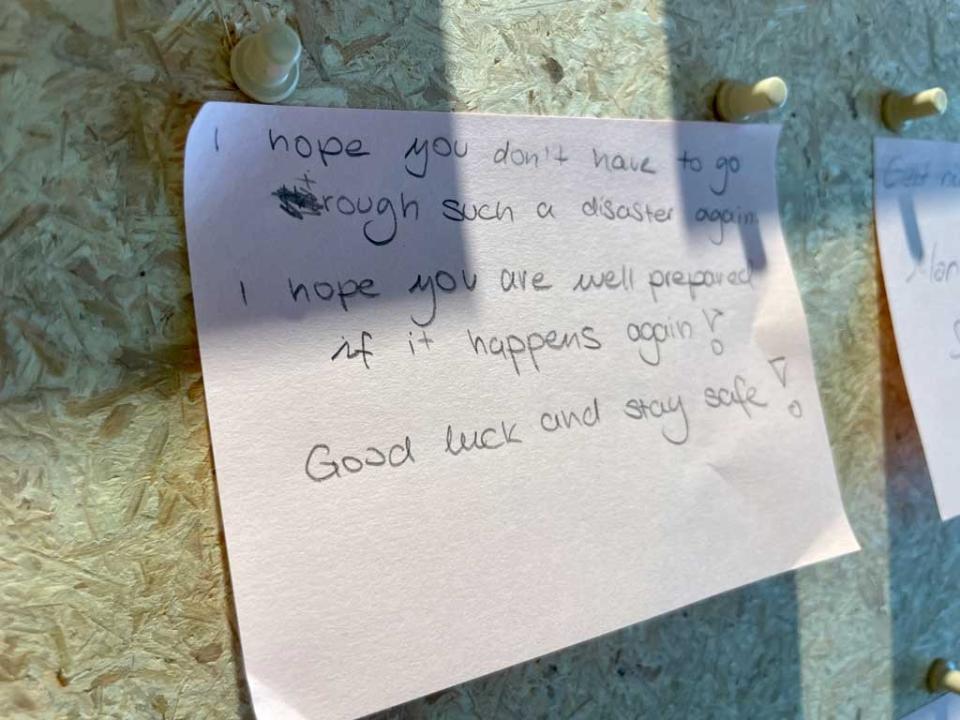 I hope you don't have to go
trough such a disaster again.
I hope you are well prepared
if it happens again!
Good luck and stay safe!